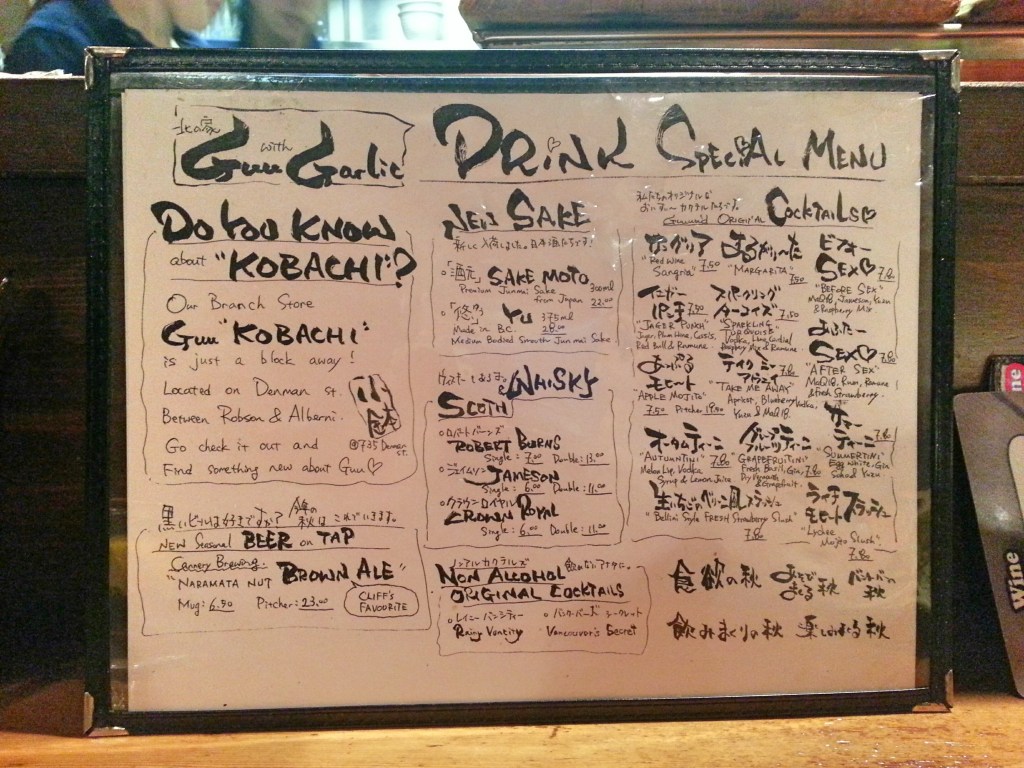 北の家
Guu with Garlic
DRiNK SPECiAL MENU
DO YOU KNOW
about "KOBACHI"?
Our Branch Store
Guu "KOBACHI"
is just a block away!
Located on Denman st.
Between Robson & Alberni.
Go check it out and
Find something new about Guu♡
小鉢
@735 Denman
st.
黒いビールは好きですか?
NEW Seasonal BEER on TAP
Cannery Brewing.
"NARAMATA NUT BROWN ALE"
Mug: 6.50 Pitcher: 23.00
CLIFF'S
FAVOURITE
NEW SAKE
新しく入荷しました。日本酒たちです!
「酒元」 SAKE MOTO 300ml
Premium Junmai Sake
from Japan 22.00
「悠」 YU 375ml
Made in B.C. 28.00
Medium Bodied Smooth Junmai Sake
WHISKY
SCOTH
ロバートバーンズ
ROBERT BURNS
Single: 7.00 Double: 13.00
ジェイムソン
JAMESON
Single: 6.00 Double: 11.00
クラウンロイヤル
CROWN ROYAL
Single: 6.00 Double: 11.00
ノンアルカクテルズ
NON ALCOHOL
ORIGINAL COCKTAILS
レイニーバンシティー
Rainy Vancity
バンクーバーズ シークレット
Vancouver's Secret
私たちのオリジナルな
おいすぃ〜カクテルたちです。
Guuu'd ORIGINAL COCKTAILS♡
サングリア
"Red Wine
Sangria" 7.50
まるがり〜た
"MARGARITA"
7.50
ビフォー
SEX♡ 7.80
"BEFORE SEX"
Jameson, Yuzu
& Raspberry Mix
イエガー
パンチ 7.50
"JAGER PUNCH"
Red Bull & Ramune
スパークリング
ターコイズ 7.50
"SPARKLING
TURQUOISE"
Vodka, Lime Cordial
あふたー
SEX♡ 7.80
"AFTER SEX"
Rum, Ramune
& Fresh Strawberry.
あっぷる
モヒート
"APPLE MOJITO"
7.50 Pitcher 19.50
テイクミー
アウェイ 7.80
"TAKE ME AWAY"
Apricot, Blueberry Vodka,
サマー
ティーニ 7.80
"SUMMERTINI"
Egg White, Gin
オータムティーニ
"AUTUMNTINI" 7.80
Melon Liq, Vodka
Syrup & Lemon Juice
グレープ
フルーツティーニ
"GRAPEFRUITINI"
Fresh Basil, Gin, 7.80
& Grapefruit.
生いちごのベリーニ風スラッシュ
"Bellini Style FRESH Strawberry Slush"
7.80
ライチ
モヒートスラッシュ
"Lychee
Mojito Slush"
7.80
食欲の秋
飲みまくりの秋
Wine